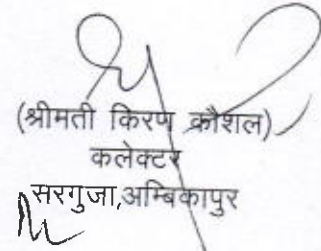 (श्रीमती किरण कौशल)
कलेक्टर
सरगुजा,अम्बिकापुर